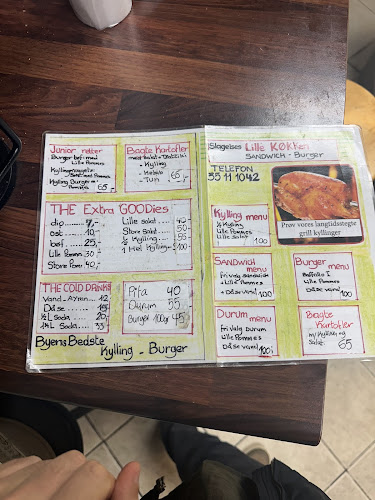 Junior retter
Burger bøf med
Lille Pommes
Kyllingnuggets
Små Pommes
Kylling Burger m.
Pommes 65,-
Bagte Kartofler
med salat + Tzatziki
- Kylling
- Kebab
- Tun 65,-
THE Extra GOODies
dip 7,-
ost 10,-
bøf 25,-
Lille Pommes 30,-
Store Pom. 40,-
Lille salat 40
Store salat 50
½ Kylling 55
1 Hel Kylling 100
THE COLD DRINKS
Vand - Ayran 12
Dåse 15
½ L soda 20
1½ L Soda 35
Pita 40
Durum 55
Burger 100gr 45
Byens Bedste
Kylling - Burger
Slagelses Lille KØKKen
SANDWICH - Burger
TELEFON
55 11 10 42
Prøv vores langtidsstegte
grill kyllinger
Kylling menu
½ Kylling
Lille Pommes
Lille salat
100
SANDWICH
menu
fri valg sandwich
+ Lille Pommes
+ Dåse vand 100
Burger
menu
Lille Pommes
Dåse vand
100
Durum
menu
fri valg Durum
Lille Pommes
Dåse vand 100
Bagte
Kartofler
m/ Kylling og
Salat 65